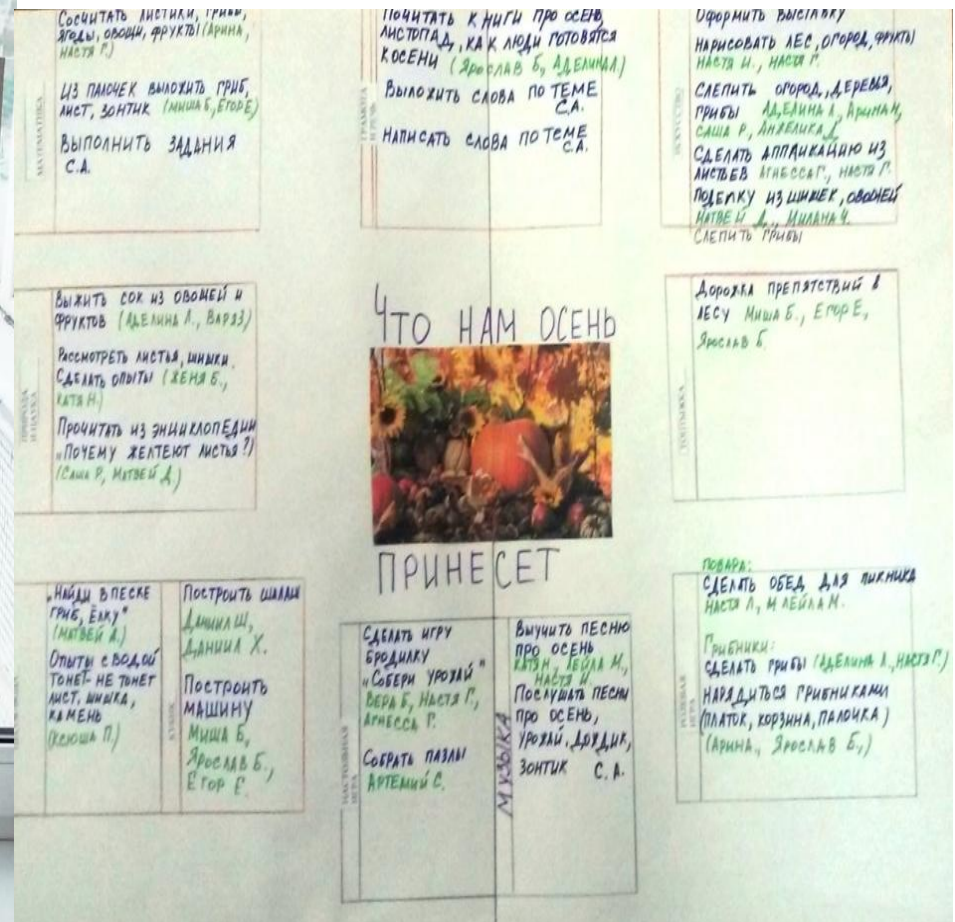 МАТЕМАТИКА
Сосчитать листики, грибы,
ягоды, овощи, фрукты (Арина,
Настя Г.)
Из палочек выложить гриб,
лист, зонтик (Миша Б, Егор Е)
Выполнить задания
С.А.
ГРАМОТА
И РЕЧЬ
Почитать книги про осень,
листопад, как люди готовятся
к осени (Ярослав Б, Аделина Л)
Выложить слова по теме
С.А.
Написать слова по теме
С.А.
ИСКУССТВО
Оформить выставку
Нарисовать лес, огород, фрукты
Настя И., Настя Г.
Слепить огород, деревья,
грибы Аделина Л, Арина Н,
Саша Р, Анжелика Д
Сделать аппликацию из
листьев Агнесса Г., Настя Г.
Поделку из шишек, овощей
Матвей Д., Милана Ч.
Слепить грибы
ПРИРОДА
И НАУКА
Выжить сок из овощей и
фруктов (Аделина Л., Варя З)
Рассмотреть листья, шишки.
Сделать опыты (Женя Б.,
Катя Н.)
Прочитать из энциклопедии
„Почему желтеют листья?)
(Саша Р, Матвей Д)
Что нам осень
принесет
Дорожка препятствий в
лесу Миша Б., Егор Е,
Ярослав Б.
„Найди в песке
гриб, ёлку"
(Матвей Д.)
Опыты с водой
тонет-не тонет
лист, шишка,
камень
(Ксюша П.)
Построить шалаш
Даниил Ш,
Даниил Х.
Построить
машину
Миша Б,
Ярослав Б.,
Егор Е.
НАСТОЛЬНАЯ
ИГРА
Сделать игру
бродилку
„Собери урожай"
Вера Б, Настя Г.,
Агнесса Г.
Собрать пазлы
Артемий С.
МУЗЫКА
Выучить песню
про осень
Катя Н, Лейла М.,
Настя И.
Послушать песни
про осень,
урожай, дождик,
зонтик С.А.
Повара:
Сделать обед для пикника
Настя Л, М Лейла М.
Грибники:
Сделать грибы (Аделина Л., Настя Г)
Нарядиться грибниками
(платок, корзина, палочка)
(Арина, Ярослав Б.,)